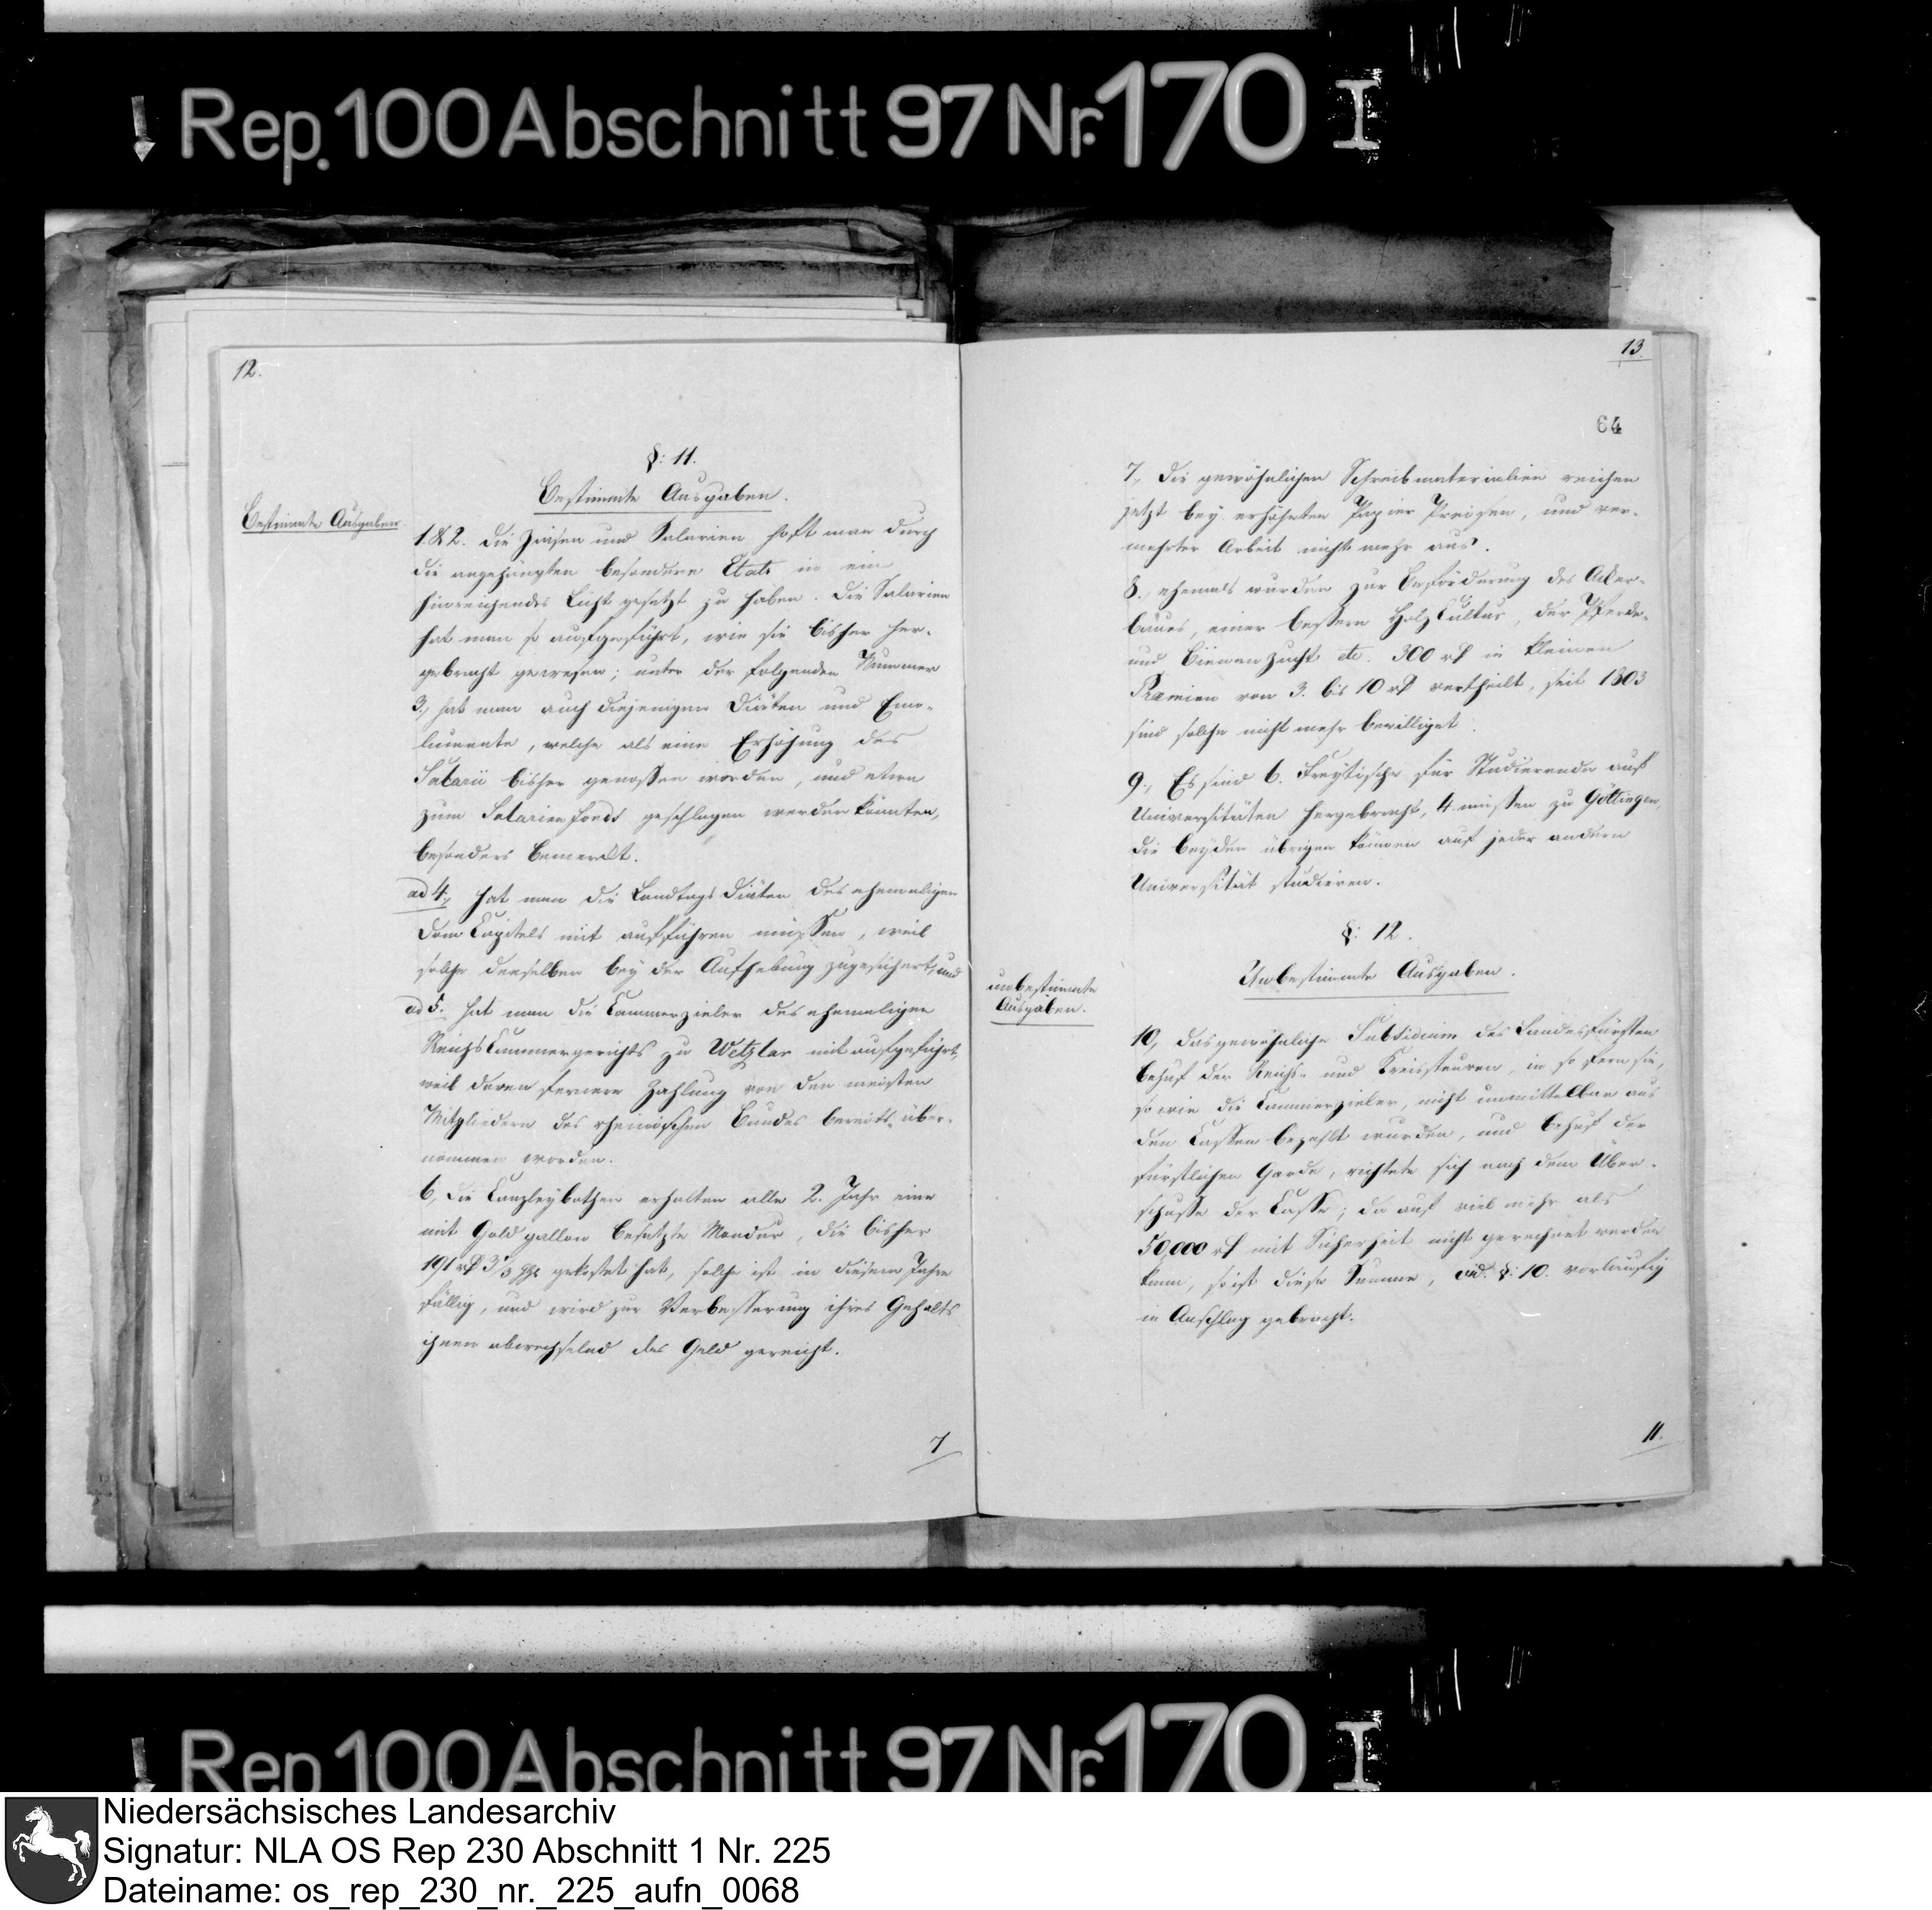 Rep. 100 Abschnitt 97 Nr. 170 I
12.
§: 11.
Bestimmte Ausgaben.
Bestimmte Ausgaben.
1 & 2. Die Zinsen und Salarien hofft man durch
die angehängten besondere Etats in ein
hinreichendes Licht gesetzt zu haben. Die Salarien
hat man so aufgeführt, wie sie bisher her-
gebracht gewesen; unter der folgenden Nummer
3, hat man auch diejenigen Diäten und Emo-
lumente, welche als eine Erhöhung des
Salarii bisher genossen worden, und etwa
zum Salarien fonds geschlagen werden könnten,
besonders bemerkt.
ad 4, hat man die Landtags Diäten des ehemaligen
Dom Capitels mit aufführen müssen, weil
solche denselben bey der Aufhebung zugesichert, und
ad 5. hat man die Cammerzieler des ehemaligen
Reichs Cammergerichts zu Wetzlar mit aufgeführt,
weil deren fernere Zahlung von den meisten
Mitgliedern des rheinischen Bundes bereits über-
nommen worden.
6, Die Canzleybothen erhalten alle 2. Jahr eine
mit Gold gallon besetzte Mondur, die bisher
191 rℓ 3 gekostet hat, solche ist in diesem Jahre
fällig, und wird zur Verbesserung ihres Gehalts
ihnen abwechselnd das Geld gereicht.
7
13.
64
7, Die gewöhnlichen Schreibmaterialien reichen
jetzt bey erhöhten Papier Preisen, und ver-
mehrter Arbeit nicht mehr aus.
8., ehemals wurden zur Beförderung des Acker-
baues, einer bessern Holz Cultur, der Pferde-
und Bienenzucht etc. 300 rℓ in kleinen
Praemien von 3. bis 10 rℓ vertheilt, seit 1803
sind solche nicht mehr bewilliget.
9., Es sind 6. Freytische für Studierende auf
Universitäten hergebracht, 4. müssen zu Göttingen,
die beyden übrigen können auf jeder andern
Universität studieren.
§: 12.
Unbestimmte Ausgaben.
unbestimmte
Ausgaben.
10, Das gewöhnliche Subsidium des Landesfürsten
behuf der Reichs- und Kreissteuren, in so fern sie,
so wie die Cammerzieler, nicht unmittelbar aus
den Cassen bezahlt wurden, und behuf der
fürstlichen Garde, richtete sich nach dem Über-
schusse der Casse; da auf viel mehr als
50,000 rℓ mit Sicherheit nicht gerechnet werden
kann, so ist diese Summe, vid. §: 10. vorläufig
in Anschlag gebracht.
11.
Rep. 100 Abschnitt 97 Nr. 170 I
Niedersächsisches Landesarchiv
Signatur: NLA OS Rep 230 Abschnitt 1 Nr. 225
Dateiname: os_rep_230_nr._225_aufn_0068